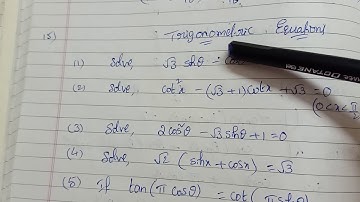 15) Trigonometric Equations
(1) Solve, √3 sinθ =
(2) Solve, cot²x - (√3+1)cotx + √3 = 0
(0<x<π/2
(3) Solve, 2cos²θ - √3 sinθ + 1 = 0
(4) Solve, √2 (sinx + cosx) = √3
(5) If tan(π cosθ) = cot(π sinθ)